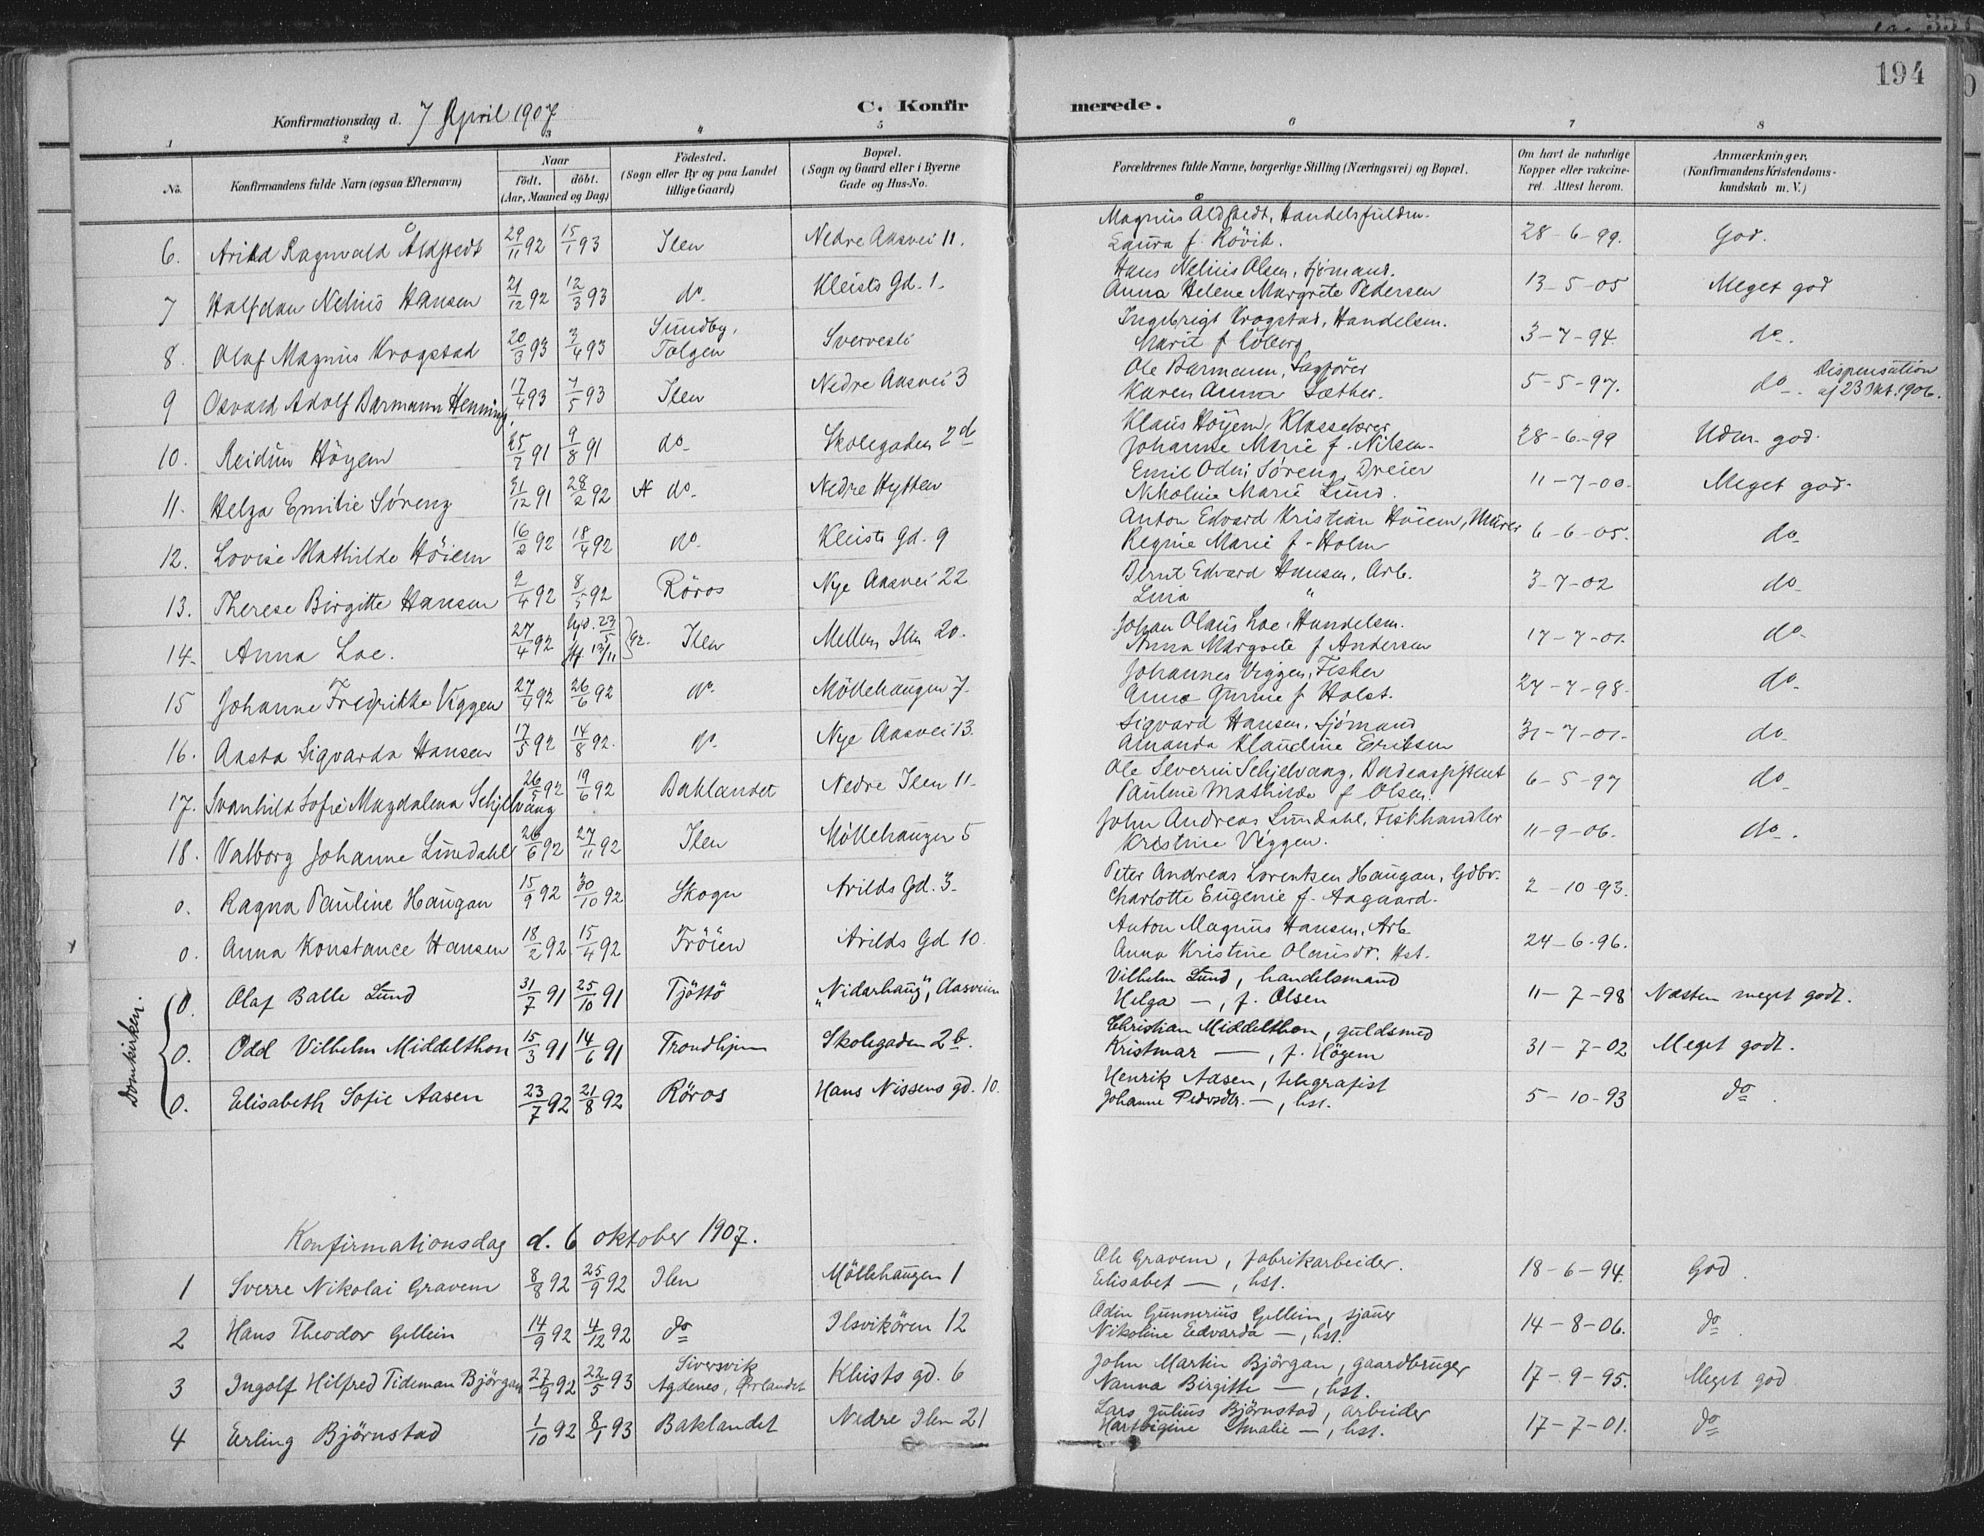 194
Konfirmationsdag d. 7 April 1907
C. Konfirmerede.
1 2 3 4 5 6 7 8
No. Konfirmandens fulde Navn (ogsaa Efternavn) Naar födt. döbt. (Aar, Maaned og Dag) Födested. (Sogn eller By og paa Landet tillige Gaard) Bopæl. (Sogn og Gaard eller i Byerne Gade og Hus-No. Forældrenes fulde Navne, borgerlige Stilling (Næringsvei) og Bopæl. Om havt de naturlige Kopper eller vakcineret. Attest herom. Anmærkninger, (Konfirmandens Kristendomskundskab m. V.)
6. Arild Ragnvald Åldstedt 29/11 92 15/1 93 Ilen Nedre Aasvei 11. Magnus Åldstedt, Handelsfuldm. Laura f. Rövik. 28-6-99. God.
7 Halfdan Nelius Hansen 21/12 92 12/3 93 do. Kleists Gd. 1. Hans Nelius Olsen, Sjömand. Anna Helene Margrete Pedersen 13-5-05 Meget god
8. Olaf Magnus Krogstad 20/3 93 3/4 93 Sundby, Tolgen Sverresli Ingebrigt Krogstad, Handelsm. Marit f. Löberg 3-7-94. do.
9 Osvard Adolf Barmann Henning 17/4 93 7/5 93 Ilen Nedre Aasvei 3 Ole Barmann, Sagförer Karen Anna Sæther. 5-5-97. do. Dispensation af 23 Okt. 1906.
10. Reidun Höyem 25/7 91 9/8 91 do. Skolegaden 2d Klaus Höyem, Klasselærer Johanne Marie f. Nilsen. 28-6-99 Udm. god.
11. Helga Emilie Söreng 31/12 91 28/2 92 do. Nedre Hytten Emil Odin Söreng, Dreier Nikoline Marie Lund. 11-7-00. Meget god.
12. Lovise Mathilde Höiem 16/2 92 18/4 92 do. Kleists Gd. 9 Anton Edvard Kristian Höiem, Murer Regine Marie f. Holm 6-6-05. do
13. Therese Birgitte Hansen 2/4 92 8/5 92 Röros Nye Aasvei 22 Bernt Edvard Hansen, Arb. Lina " 3-7-02 do
14. Anna Loe. 27/4 92 hjd. 23/5 13/11 92. Ilen Mellem Ilen 20. Johan Olaus Loe, Handelsm. Anna Margrete f Andersen 17-7-01. do
15 Johanne Fredrikke Viggen 27/4 92 26/6 92 do. Möllehaugen 7. Johannes Viggen, Fisker Anna Gurine f. Holst. 27-7-98. do
16. Aasta Sigvarda Hansen 17/5 92 14/8 92. do. Nye Aasvei 13. Sigvard Hansen, Sjömand Amanda Klaudine Eriksen 31-7-01. do
17. Svanhild Sofie Magdalena Schjelvaag 26/5 92 19/6 92 Baklandet Nedre Ilen 11. Ole Severin Schjelvaag, Badeassistent Pauline Mathilde f Olsen. 6-5-97 do
18. Valborg Johanne Lundahl 26/6 92 27/11 92 Ilen Möllehaugen 5 John Andreas Lundahl, Fiskhandler Kristine Viggen. 11-9-06. do.
o. Ragna Pauline Haugan 15/9 92 30/10 92 Skogn Arilds Gd. 3. Peter Andreas Lorentsen Haugan, Gdbr. Charlotte Eugenie f. Aagaard. 2-10-93.
o. Anna Konstance Hansen 18/2 92. 15/4 92 Fröien Arilds Gd. 10. Anton Magnus Hansen, Arb. Anna Kristine Olausdr. Hst. 24-6-96.
Domkirken.
o. Olaf Balle Lund 31/7 91 25/10 91 Tjöttö "Nidarhaug", Aasveien Vilhelm Lund, handelsmand Helga —, f. Olsen 11-7-98 Næsten meget godt.
o. Odd Vilhelm Middelthon 15/3 91 14/6 91 Trondhjem Skolegaden 2b. Christian Middelthon, guldsmed Kristmar —, f. Höyem 31-7-02 Meget godt.
o. Elisabeth Sofie Aasen 23/7 92 21/8 92 Röros Hans Nissens gd. 10. Henrik Aasen, telegrafist Johanne Pedersdtr. —, hst. 5-10-93 do.
Konfirmationsdag d. 6 oktober 1907.
1 Sverre Nikolai Gravem 8/8 92 25/9 92 Ilen Möllehaugen 1 Ole Gravem, fabrikarbeider. Elisabet —, hst. 18-6-94. God.
2 Hans Theodor Gellein 14/9 92 4/12 92 do Ilsvikören 12 Odin Gunnerius Gellein, sjauer Nikoline Edvarda —, hst. 14-8-06. do
3 Ingolf Hilfred Tideman Björgan 27/9 92 22/5 93 Siversvik Agdenes, Ørlandet Kleists gd. 6 John Martin Björgan, gaardbruger Nanna Birgitte —, hst. 17-9-95. Meget god
4 Erling Björnstad 1/10 92 8/1 93 Baklandet Nedre Ilen 21 Lars Julius Björnstad, arbeider Hartvigine Amalie —, hst. 17-7-01. do